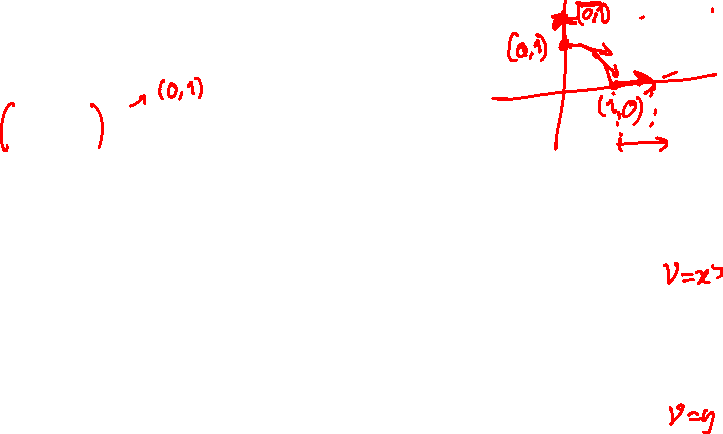 (0,1)
(0,1)
( ) (0,1)
(1,0)
V=x
V=y